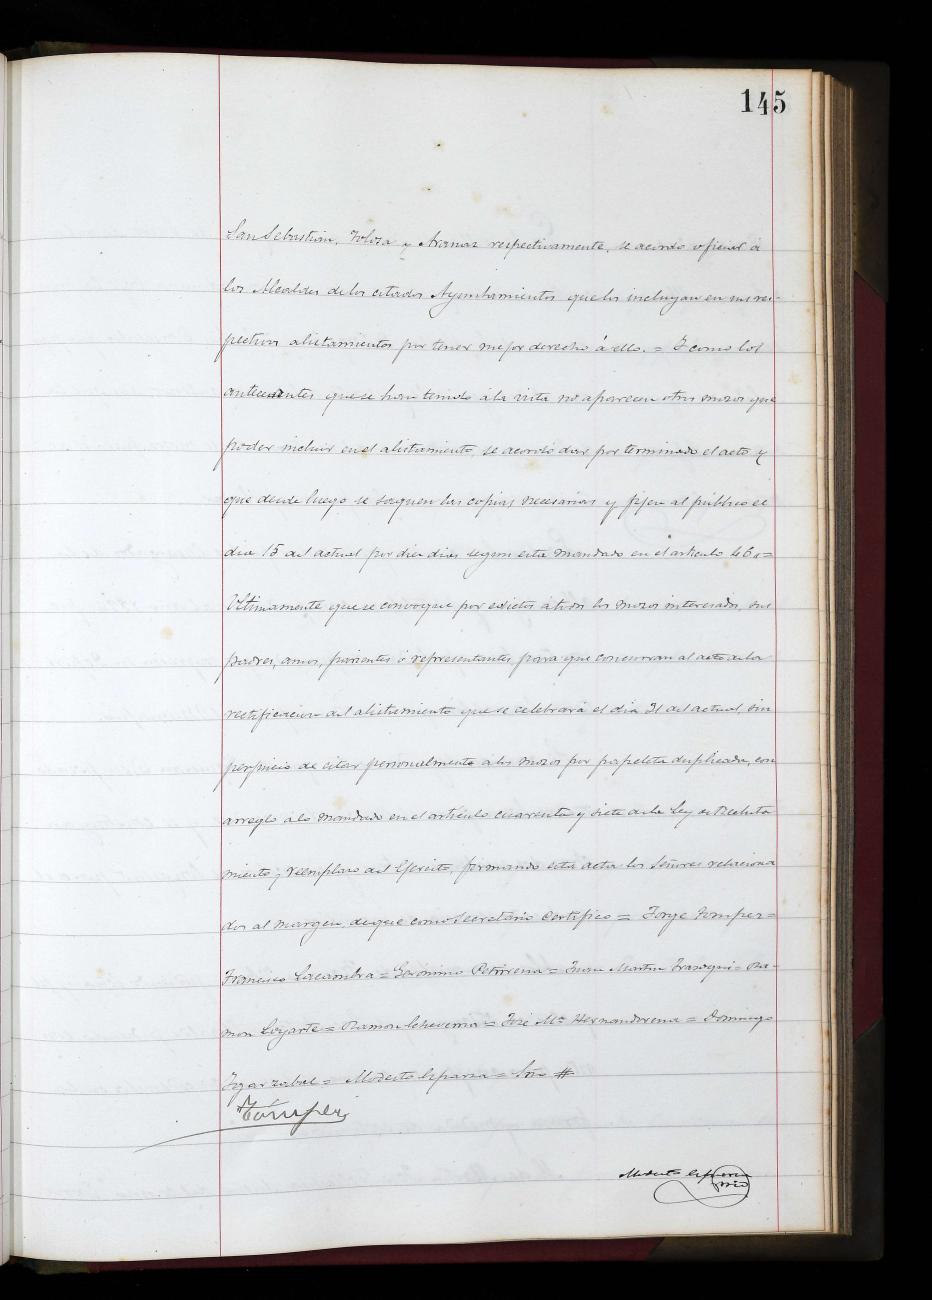 145
San Sebastian, Tolosa y Aranaz respectivamente, se acordó oficiar á
los Alcaldes de los citados Ayuntamientos que los incluyan en sus res-
pectivos alistamientos por tener mejor derecho á ello. = Y como los
antecedentes que se han tenido á la vista no aparecen otros mozos que
poder incluir en el alistamiento, se acordó dar por terminado el acto y
que desde luego se saquen las copias necesarias y fijen al público el
dia 15 del actual por diez dias segun está mandado en el artículo 46. =
Ultimamente que se convoque por edictos a todos los mozos interesados, sus
padres, amos, parientes ó representantes para que concurran al acto de la
rectificacion del alistamiento que se celebrará el dia 31 del actual sin
perjuicio de citar personalmente a los mozos por papeleta duplicada, con
arreglo a lo mandado en el artículo cuarenta y siete de la Ley de Recluta
miento y reemplazo del Ejercito, firmando esta acta los Señores relaciona
dos al margen, de que como Secretario Certifico = Jorge Tomper =
Francisco Lacambra = Gerónimo Petrirena = Juan Martin Irasoqui = Ra-
mon Loyarte = Ramon Echeverria = José Ma. Hernandorena = Domingo
Igarzabal = Modesto Esparza = Srio #
Támper
Modesto Esparza
Srio